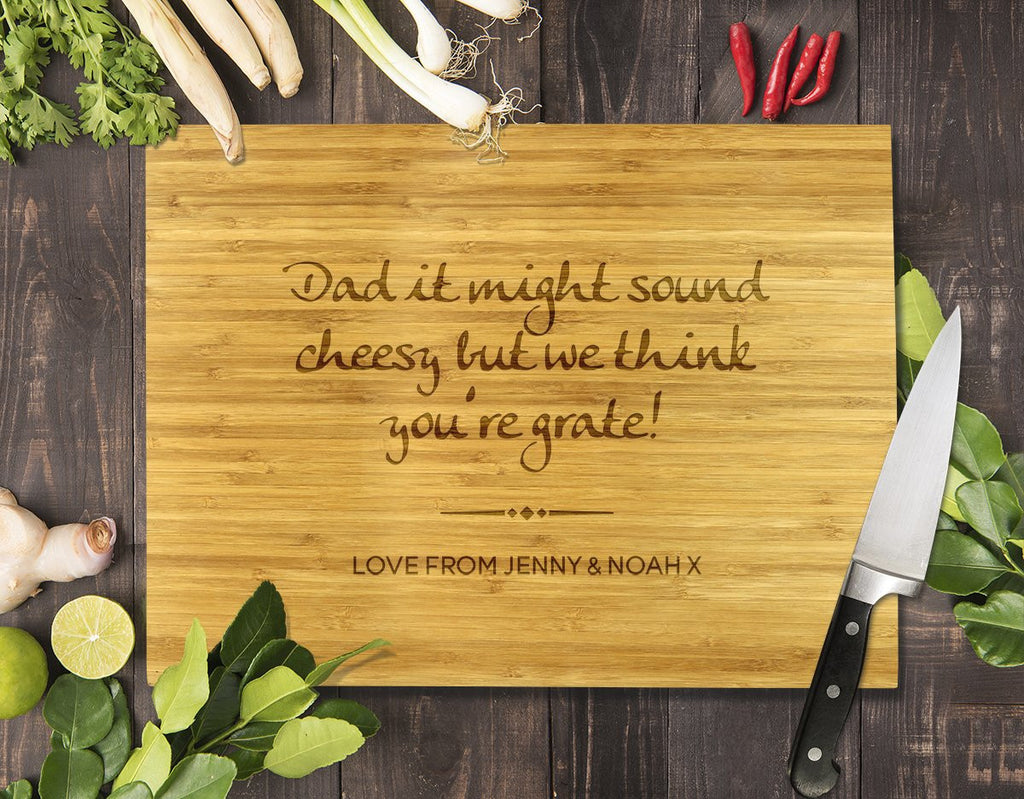 Dad it might sound
cheesy but we think
you're grate!
LOVE FROM JENNY & NOAH X